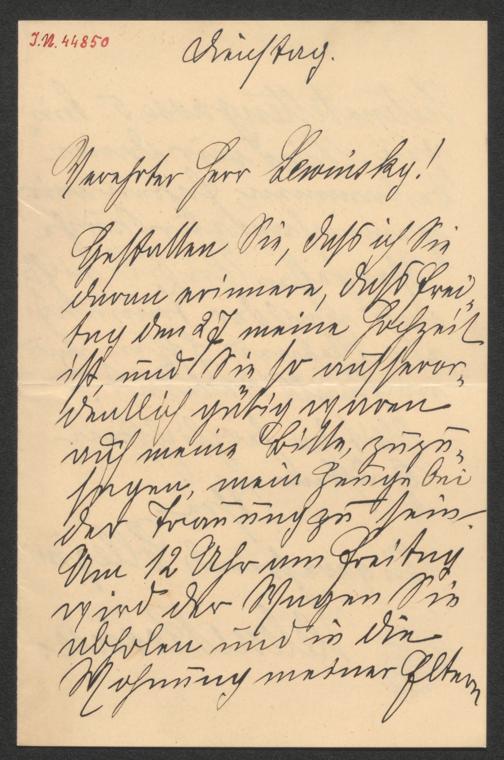 I.N. 44850
Dienstag.
Verehrter Herr Lewinsky!
Gestatten Sie, dass ich Sie
daran erinnere, dass Frei-
tag den 27 meine Hochzeit
ist, und Sie so ausseror-
dentlich gütig waren
auf meine Bitte, zuzu-
sagen, mein Zeuge bei
der Trauung zu sein.
Um 12 Uhr am Freitag
wird der Wagen Sie
abholen und in die
Wohnung meiner Eltern